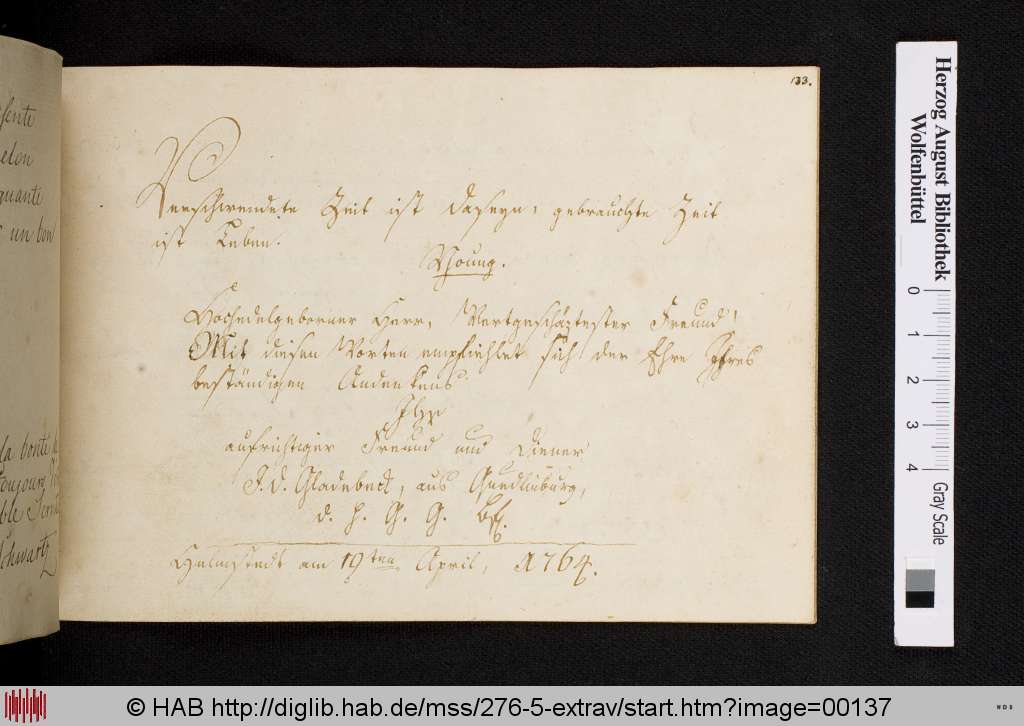 133.
Verschwendete Zeit ist Daseyn, gebrauchte Zeit
ist Leben.
Young.
Hochedelgeborner Herr, Wertgeschäztester Freund!
Mit diesen Worten empfiehlet sich der Ehre Ihres
beständigen Andenkens
Ihr
aufrichtiger Freund und Diener
J. D. Gladebeck, aus Quedlinburg,
d. h. G. G. Bfl.
Helmstedt am 19ten April, 1764.
quante
un bon
la bonté
toujours
Schwartz
Herzog August Bibliothek
Wolfenbüttel
0 1 2 3 4
Gray Scale
© HAB http://diglib.hab.de/mss/276-5-extrav/start.htm?image=00137
WDB